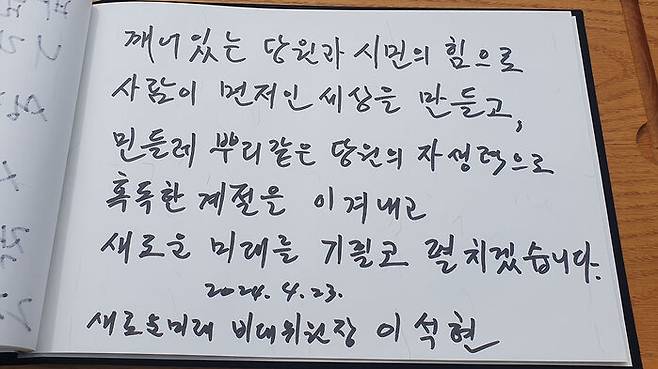 깨어있는 당원과 시민의 힘으로
사람이 먼저인 세상을 만들고,
민들레 뿌리같은 당원의 자생력으로
혹독한 계절을 이겨내고
새로운 미래를 기필코 펼치겠습니다.
2024. 4. 23.
새로운미래 비대위원장 이석현